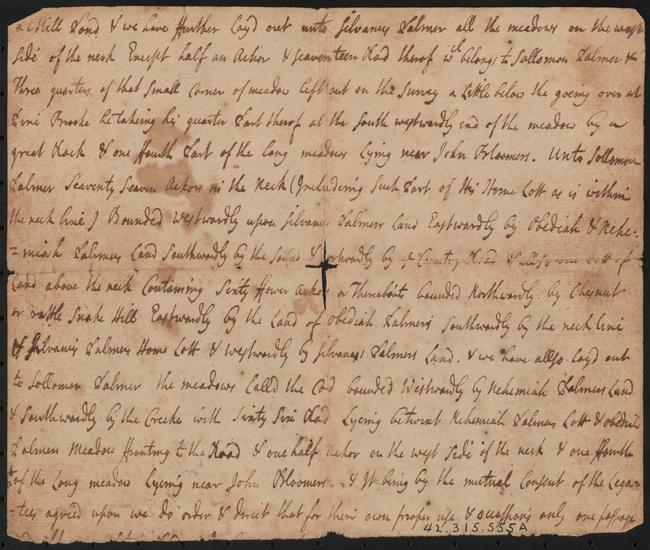 a Mill Land & we have ffurther Layd out unto Silvanes Palmer all the meadows on the west
Side of the neck Except half an Acker & seaventeen Rod therof wch belongs to Sollomon Palmer &
Three quarters of that small Corner of meadow Left out on the Survay a Little below the going over at
Brooke he takeing his quarter Part therof at the South westwardly end of the meadow by a
great Rock & one ffourth Part of the Long meadows Lying near John Bloomers. Unto Sollomon
Palmer Seaventy Seaven Ackers in the Neck (Includeing Such Part of His Home Lott as is within
the neck line) Bounded westwardly upon Silvanes Palmers Land Eastwardly by Obediah & Nehe-
-miah Palmers Land Southwardly by the Sound & by ye Country Road & allso one Lott of
Land above the neck Containing Sixty ffower Ackers or Therabouts bounded Northwardly by Chesnut
or rattle Snake Hill Eastwardly by the Land of Obediah Palmers Southwardly by the neck line
& Silvanis Palmers Home Lott & westwardly by Silvanes Palmers Land. & we have allso Layd out
to Sollomon Palmer the meadows Calld the bounded Westwardly by Nehemiah Palmers Land
& Southwardly by the Creeke with Sixty Rod Lyeing betwixt Nehemiah Palmers Lott & obediah
Palmers Meadow ffronting to the Road & one half Acker on the west Side of the neck & one ffourth
of the Long meadow Lyeing near John Bloomers. & It being by the mutual Consent of the Lega-
-tees agreed upon we do order & direct that for their own proper use & occassions only one passage
42.315.555A